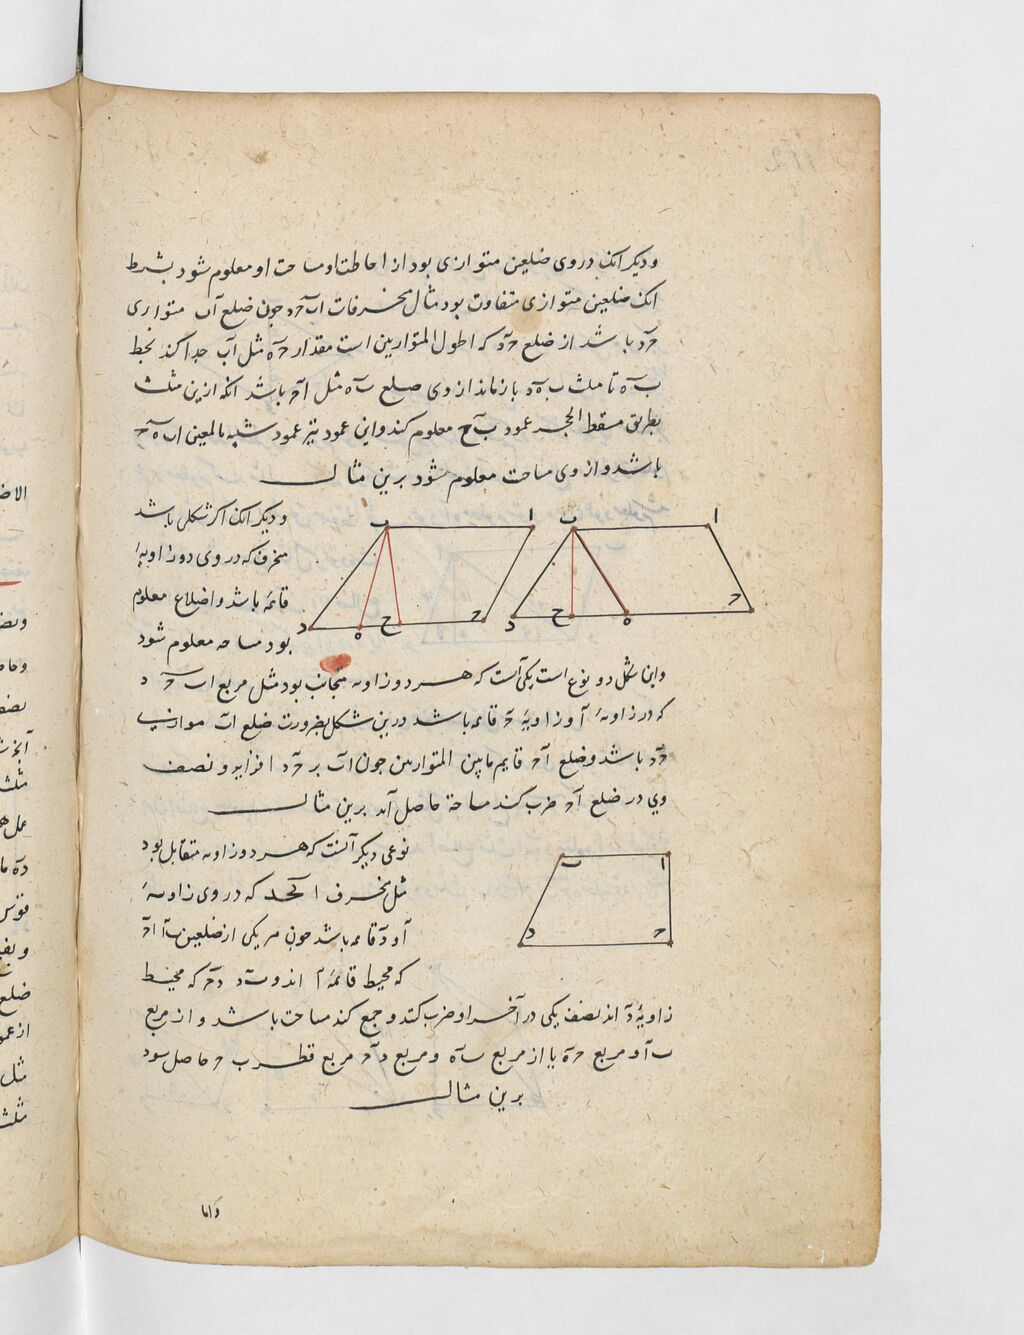 ودیگر انک در وی ضلعین متوازی بود از احاطت او مساحت او معلوم شود بشرط
انک ضلعین متوازی متفاوت بود مثال منحرفات اب حد چون ضلع اب متوازی
حد باشد از ضلع حد که اطول المتوازیین است مقدار حه مثل اب جدا کند بخط
به تا مثلث به د باز ماند از وی ضلع به مثل اح باشد انکه ازین مثلث
بطریق مسقط الحجر عمود بح معلوم کند و این عمود نیز عمود شبیه بالمعین اب ه ح
باشد و از وی مساحت معلوم شود برین مثال
ودیگر انک اگر شکلی باشد
منحرف که در وی دو زاویه
قائمه باشد و اضلاع معلوم
بود مساحه معلوم شود
ا
ب
ا
ب
ح
ه
ح
د
ح
ح
ه
د
واین شکل دو نوع است یکی آنست که هر دو زاویه متجانب بود مثل مربع اب ح د
که در زاویهٔ آ و زاویهٔ ح قائمه باشد درین شکل بضرورت ضلع اب موازی
حد باشد و ضلع اح قایم مابین المتوازیین چون اب بر حد افزاید و نصف
وی در ضلع اح ضرب کند مساحة حاصل آید برین مثال
نوعی دیگر آنست که هر دو زاویه متقابل بود
مثل منحرف ا بحد که در وی زاویهٔ
آ و د قائمه باشد چون هر یکی از ضلعین با اح
که محیط قائمهٔ آ اند و ب د دح که محیط
ا
ب
د
ح
زاویهٔ د اند نصف یکی در آخر او ضرب کند و جمع کند مساحت باشد و از مربع
ب آ و مربع حه یا از مربع به و مربع دح مربع قطر ب ح حاصل سود
برین مثال
واما